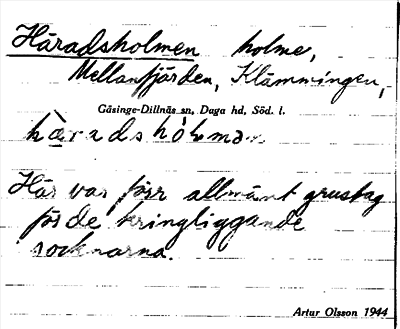 Häradsholmen holme,
Mellanfjärden, Klämmingen,
Gåsinge-Dillnäs sn, Daga hd, Söd. l.
hàradshòlmən
Här var förr allmänt grustag
för de kringliggande
socknarna.
Artur Olsson 1944